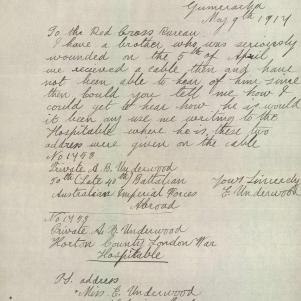 Gumeracha
May 9th 1917
To the Red Cross Bureau
I have a brother who was seriously
wounded on the 5th of April
we received a cable then and have
not been able to hear of him since
then Could you tell me how I
could get to hear how he is would
it been any use me writing to the
Hospitable where he is, these two
address were given on the cable
No 1493
Private A. B. Underwood
50th (Late 48th) Battalian Yours Sincerely
Australian Imperial Forces E Underwood
Abroad
No 1493
Private A. B Underwood
Horton County London War
Hospitable
P.S. address
Miss E. Underwood